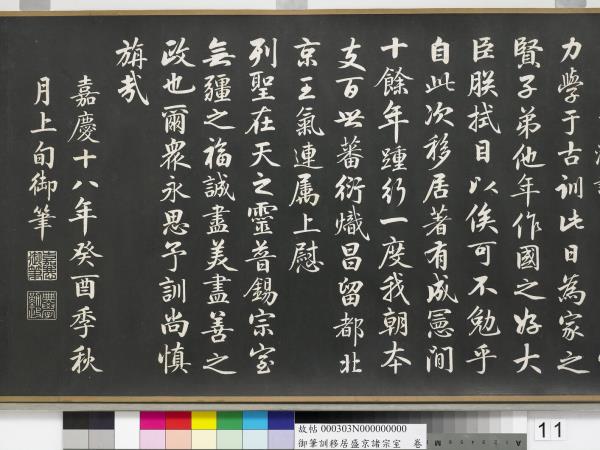 力學于古訓此日為家之
賢子弟他年作國之好大
臣朕拭目以俟可不勉乎
自此次移居著有成憲間
十餘年踵行一度我朝本
支百世蕃衍熾昌留都北
京王氣連屬上慰
列聖在天之靈普錫宗室
無疆之福誠盡美盡善之
政也爾衆永思予訓尚慎
旃哉
嘉慶十八年癸酉季秋
月上旬御筆
嘉慶御筆
故帖 000303N000000000
御筆訓移居盛京諸宗室 卷
11